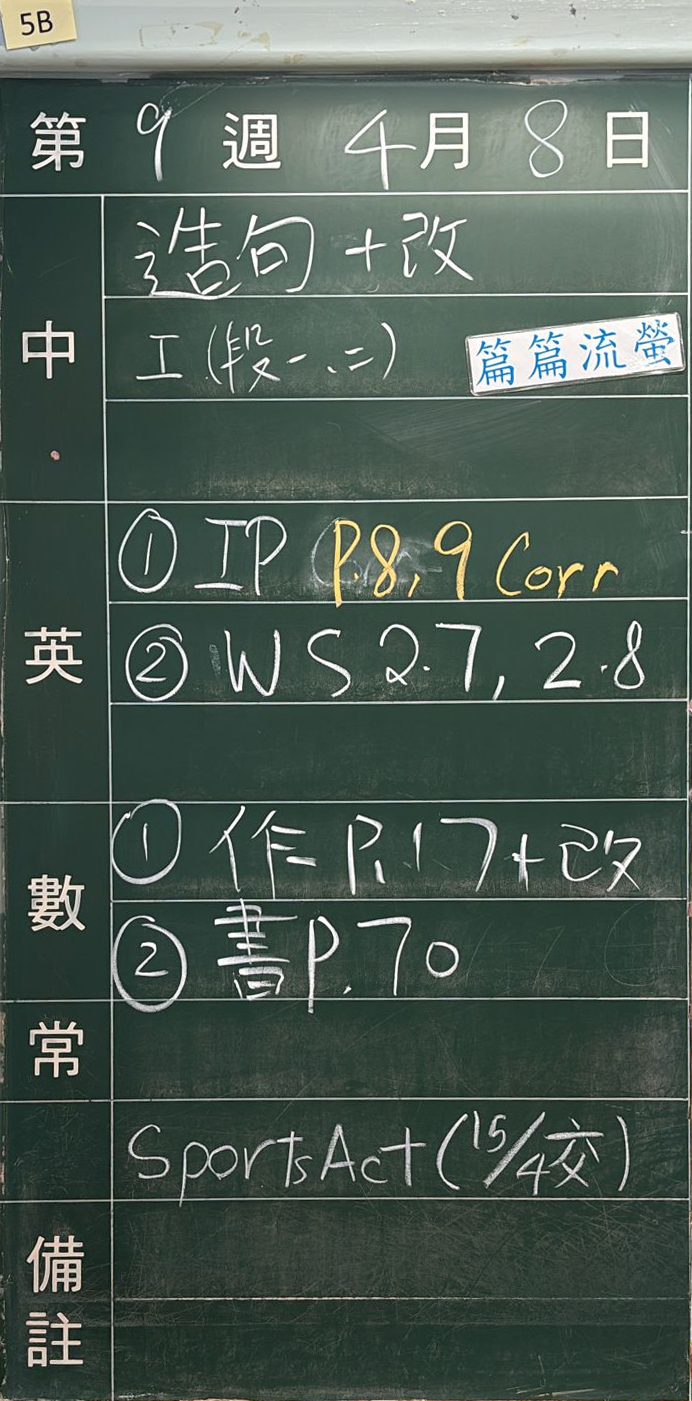 5B
第 9 週 4月 8 日
中
造句 + 改
工(段一、二) 篇篇流螢
英
① IP P.8,9 Corr
② WS 2.7, 2.8
數
① 作 P.17+改
② 書P.70
常
SportsAct (15/4交)
備註